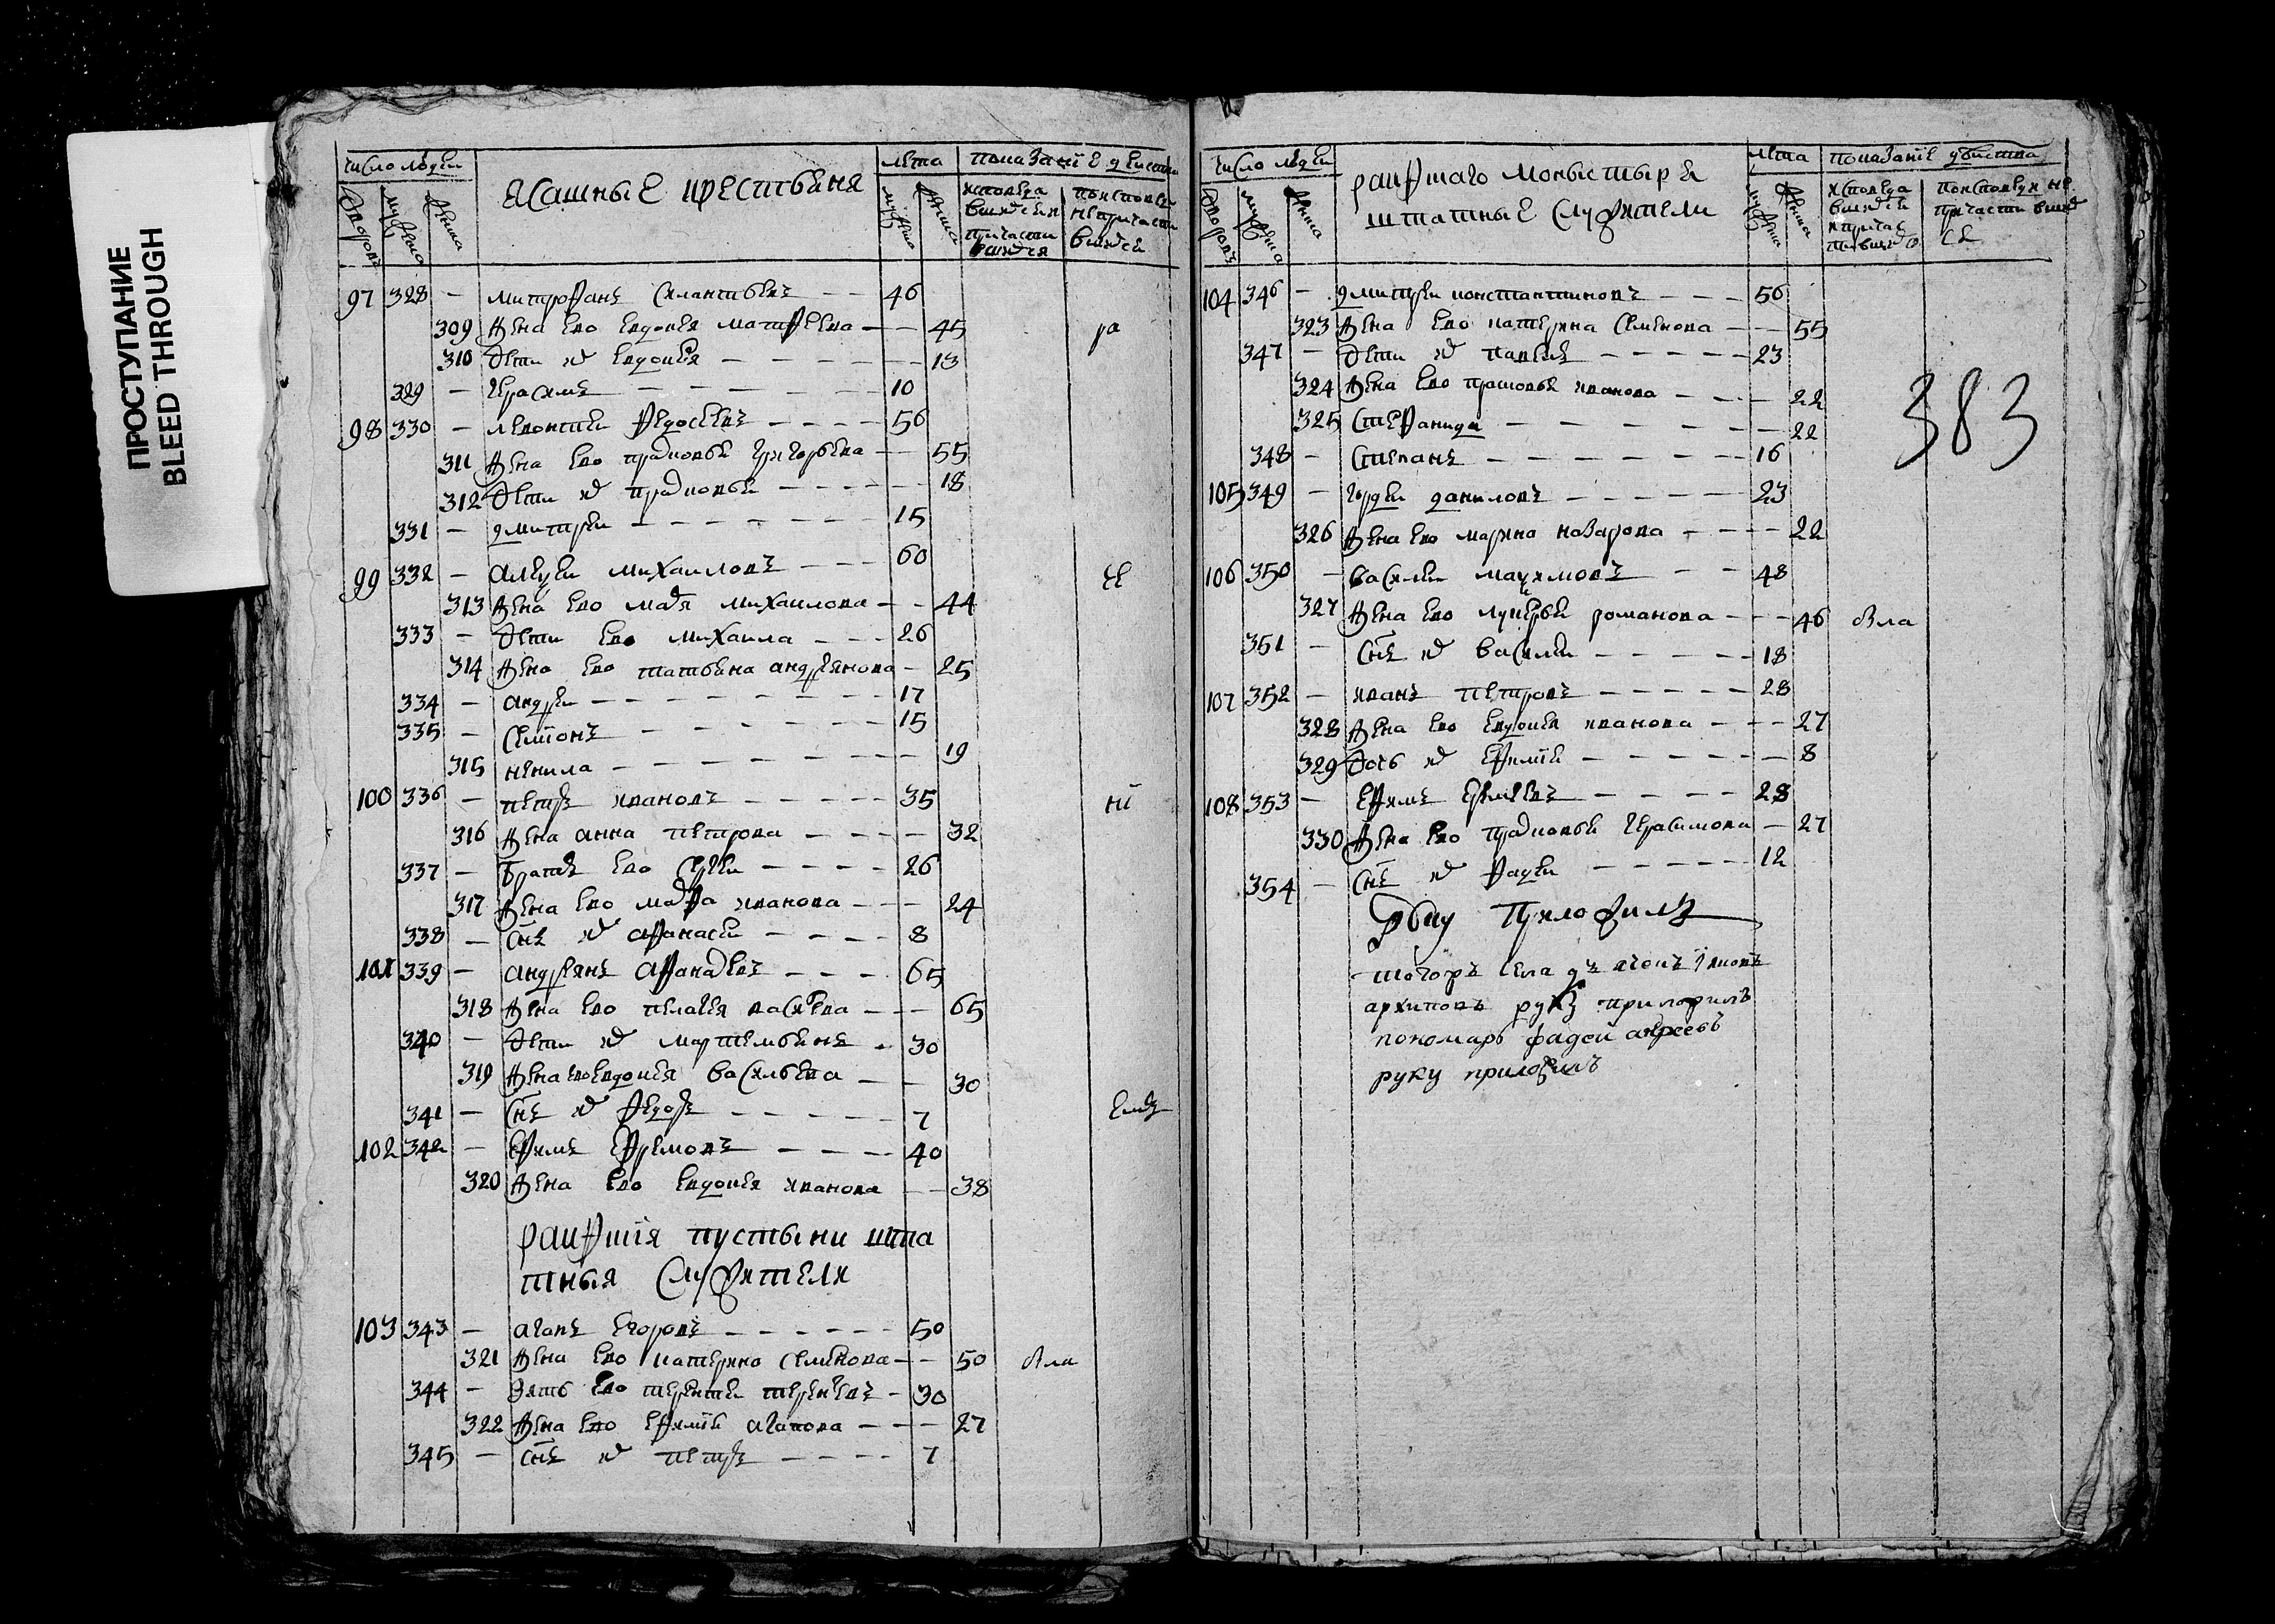 ПРОСТУПАНИЕ
BLEED THROUGH
число людей
ясашные крестьяня
лета
показание действа
дворовъ
мужеска
женска
мужеска
женска
исповеда
вшихся и
причасти
вшихся
по исповеди
не причасти
вшихся
97 328 – митрофанъ силантьевъ – – 46
309 жена ево евдокея матфеева – – 45
310 дети их евдокея – – – 13
329 – герасимъ – – – 10
98 330 – левонтеи федосеевъ – – – 56
311 жена ево прасковья григорьева – – 55
312 дети их прасковья – – – 18
331 – дмитреи – – – 15
99 332 – алексеи михаиловъ – – – 60
313 жена ево марья михаилова – – 44
333 – дети ево михаила – – – 26
314 жена ево татьяна андреянова – 25
334 – андреи – – – 17
335 – семионъ – – – 15
315 ненила – – – 19
100 336 – петръ ивановъ – – – 35
316 жена анна петрова – – – 32
337 – братъ ево сергеи – – – 26
317 жена ево марфа иванова – – – 24
338 – снъ их афанасеи – – – 8
101 339 – андреянъ афанасьевъ – – – 65
318 жена ево пелагея васильева – – – 65
340 – дети их мартемьянъ – 30
319 жена ево евдокея васильева – – 30
341 – снъ их федоръ – – – 7
102 342 – ефимъ ефремовъ – – – 40
320 жена ево евдокея иванова – – 38
раифския пустыни шта
тныя служители
103 343 – агапъ егоровъ – – – 50
321 жена ево катерина семенова – – 50
344 – зять ево терентеи терентьевъ – 30
322 жена ево ефимия агапова – – – 27
345 – снъ их петръ – – – 7
ра
ели
число людей
раифшаго моныстыря
штатные служители
лета
показание действа
дворовъ
мужеска
женска
мужеска
женска
исповеда
вшихся
и причас
тившихся
по исповеди не
причасти вших
ся
104 346 – дмитреи константиновъ – – – 56
323 жена ево катерина семенова – – 55
347 – дети их павелъ – – – 23
324 жена ево прасковья иванова – – – 22
325 стефанида – – – 22
348 – степанъ – – – 16
105 349 – гордеи даниловъ – – – 23
326 жена ево марина назарова – – – 22
106 350 – василеи максимовъ – – 48
327 жена ево лукерья романова – – – 46
351 – снъ их василеи – – – 18
107 352 – иванъ петровъ – – – 28
328 жена ево евдокея иванова – – – 27
329 дочь их ефимия – – – 8
108 353 – ефимъ еремеевъ – – – 28
330 жена ево прасковья герасимова – 27
354 – снъ их фадеи – – – 12
383
руку приложилъ
тогожъ села дьячокъ іяковъ
архиповъ руку приложилъ
пономарь фадей андреевъ
руку приложилъ